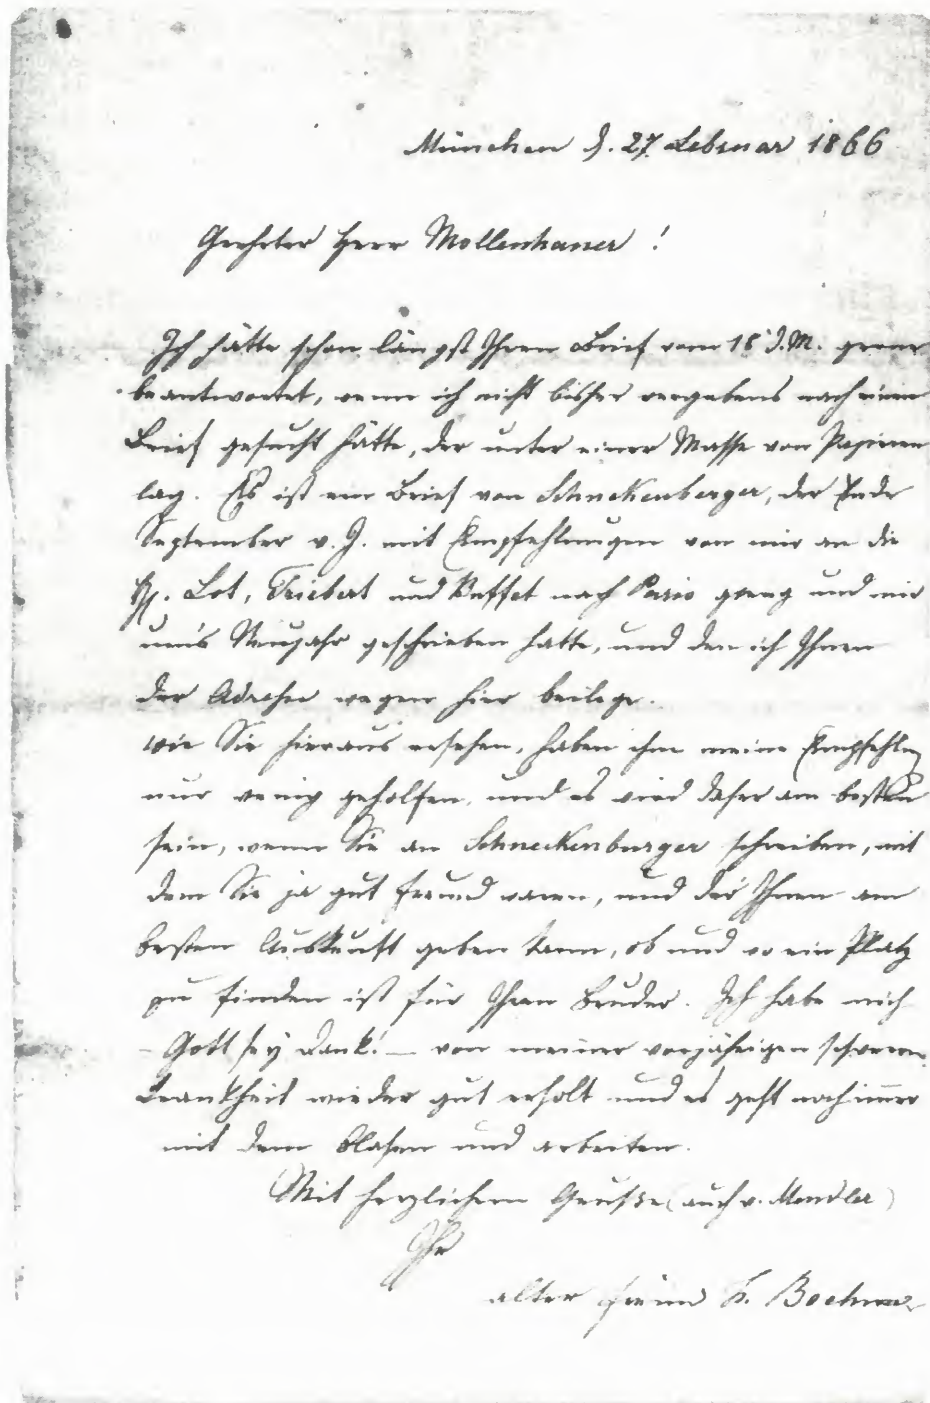 München d. 27. Februar 1866
Geehrter Herr Mollenhauer!
Ich hätte schon längst Ihren Brief vom 18 d. M. gerne
beantwortet, wenn ich nicht bisher vergebens nach einem
Brief gesucht hätte, der unter einer Masse von Papieren
lag. Es ist ein Brief von Schneckenberger, der Ende
September v. J. mit Empfehlungen von mir an die
HH. Lot, Triebert und Buffet nach Paris ging und mir
um's Neujahr geschrieben hatte, und den ich Ihnen
der Adresse wegen hier beilege.
Wie Sie hieraus ersehen, haben ihm meine
nur wenig geholfen, und es wird daher am besten
sein, wenn Sie an Schneckenburger schreiben, mit
dem Sie ja gut Freund waren, und der Ihnen am
besten Auskunft geben kann, ob und wo ein Platz
zu finden ist für Ihren Bruder. Ich habe mich
– Gott sey Dank! – von meiner vorjährigen schweren
Krankheit wieder gut erholt und es geht noch immer
mit dem Blasen und arbeiten.
Mit herzlichem Gruße (auch v. Mendler)
Ihr
alter Freund Th. Boehm